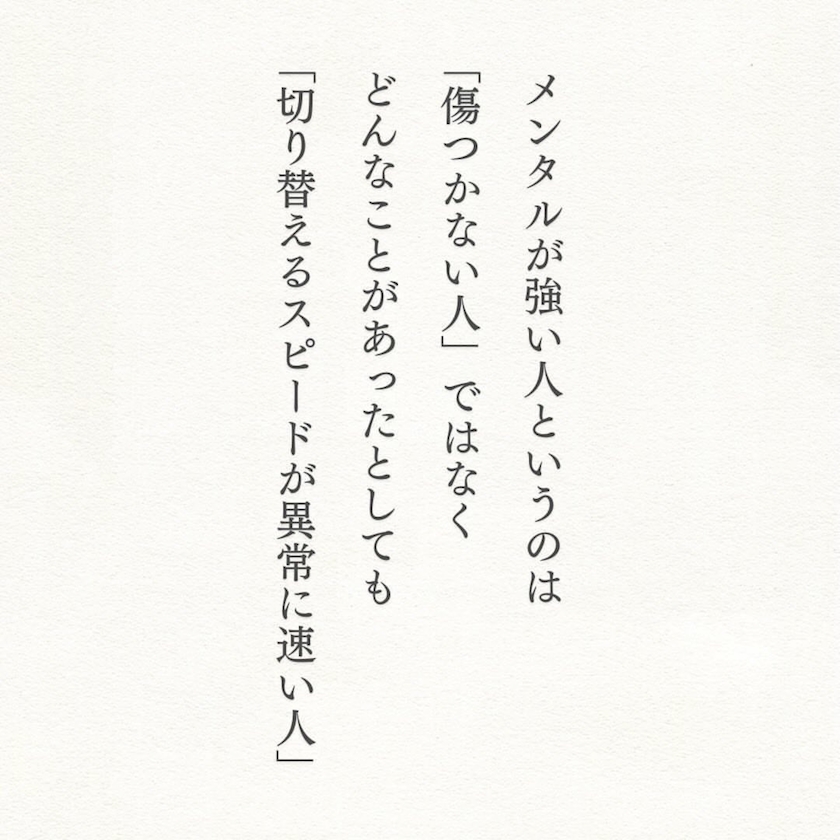 メンタルが強い人というのは
「傷つかない人」ではなく
どんなことがあったとしても
「切り替えるスピードが異常に速い人」